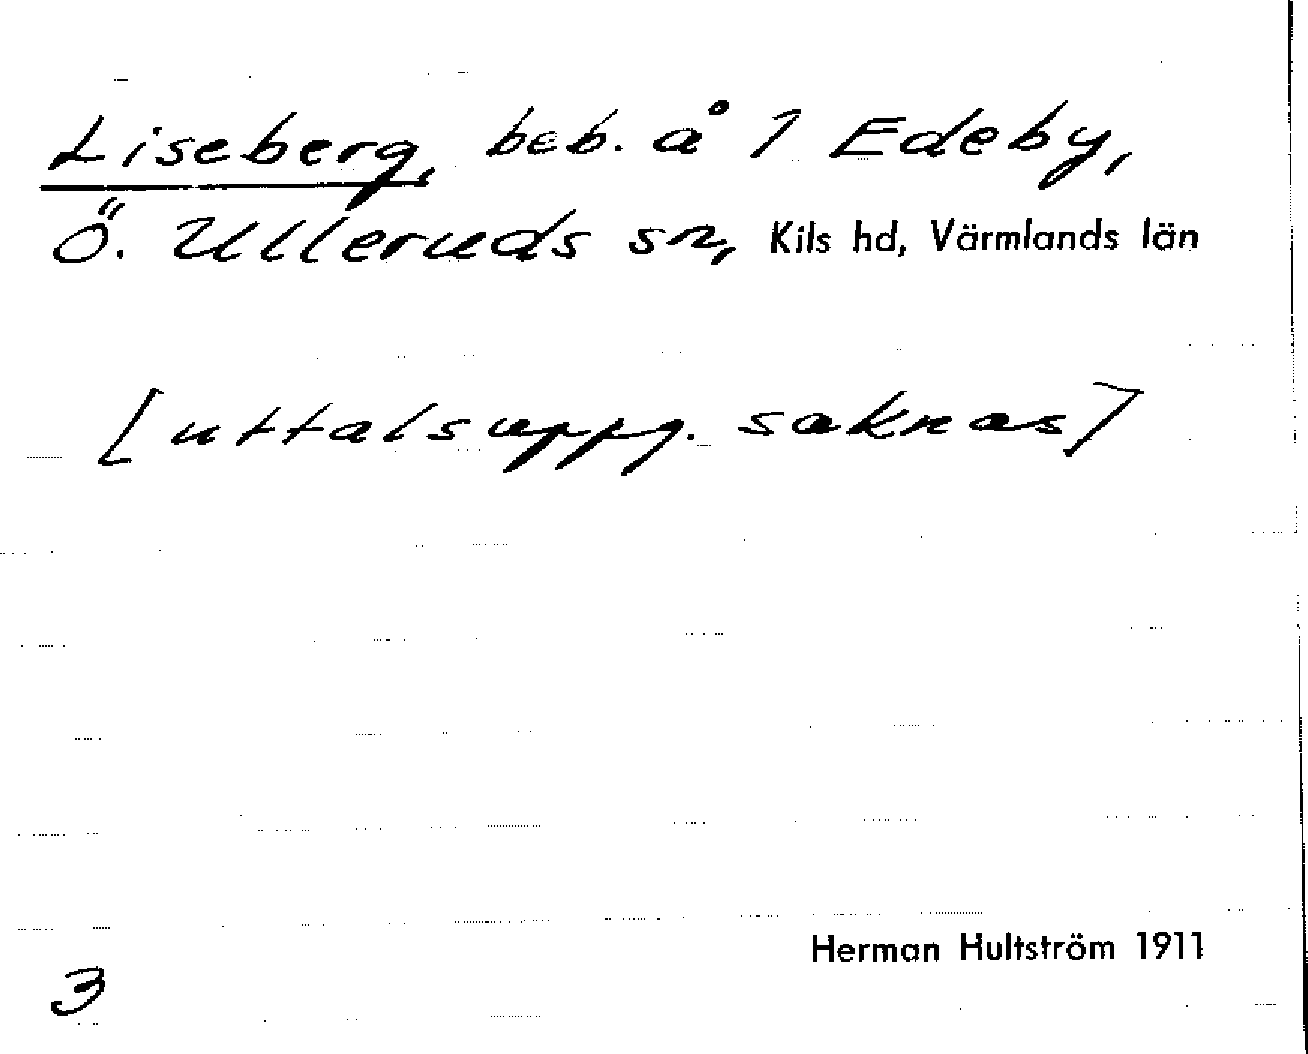 Liseberg, beb. å 1 Edeby,
Ö. Ulleruds sn, Kils hd, Värmlands län
[uttalsuppg. saknas]
Herman Hultström 1911
3